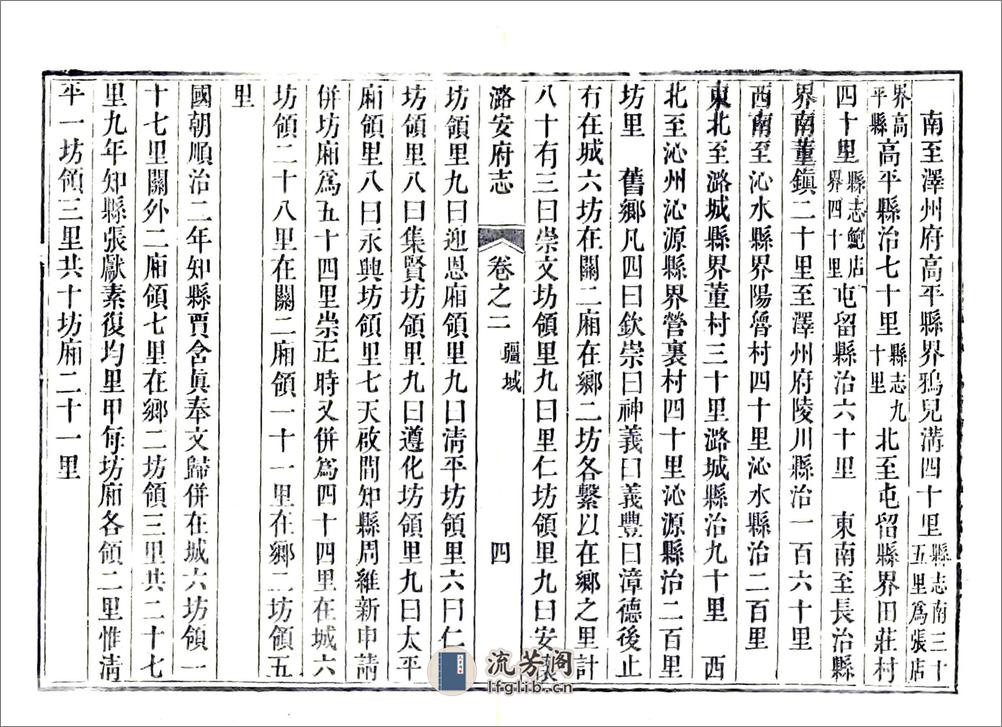 南至澤州府高平縣界鴉兒溝四十里縣志南三十五里爲張店
界高平縣高平縣治七十里縣志九十里北至屯留縣界田莊村
四十里縣志鮑店界四十里屯留縣治六十里　東南至長治縣
界南董鎮二十里至澤州府陵川縣治一百六十里
西南至沁水縣界陽魯村四十里沁水縣治二百里
東北至潞城縣界董村三十里潞城縣治九十里　西
北至沁州沁源縣界營裏村四十里沁源縣治二百里
坊里　舊鄉凡四曰欽崇曰神義曰義豐曰漳德後止
有在城六坊在關二廂在鄉二坊各繫以在鄉之里計
八十有三曰崇文坊領里九曰里仁坊領里九曰安
潞安府志　卷之二　疆域　四
坊領里九曰迎恩廂領里九曰淸平坊領里六曰仁
坊領里八曰集賢坊領里八曰遵化坊領里九曰太平
廂領里八曰永興坊領里七天啟間知縣周維新申請
併坊廂爲五十四里崇正時又併爲四十四里在城六
坊領二十八里在關二廂領一十一里在鄉二坊領五
里
國朝順治二年知縣賈含眞奉文歸併在城六坊領一
十七里關外二廂領七里在鄉二坊領三里共二十七
里九年知縣張獻素復均里甲每坊廂各領二里惟淸
平一坊領三里共十坊廂二十一里
流芳阁
lfglib.cn